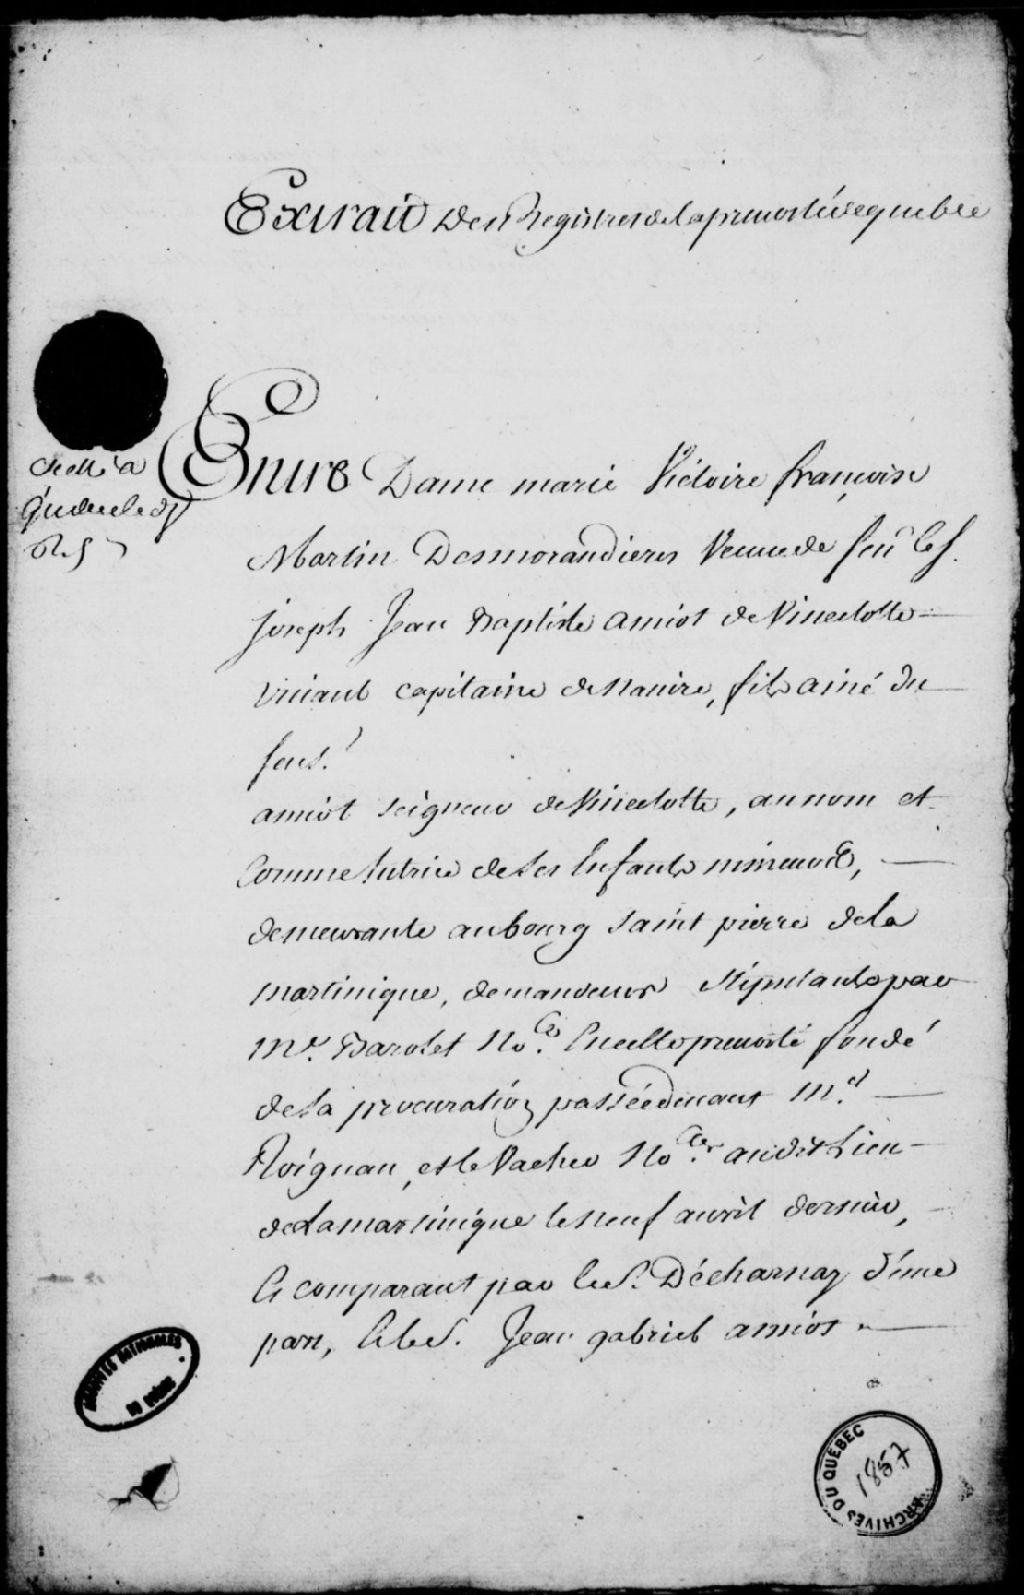 Extrait Des Registres de la prevosté de quebec
scellé a
Quebec led.
Entre Dame marie Victoire françoise
Martin Desmorandieres Veuve de feu le s.
joseph Jean Baptiste amiot de Vincelotte
vivant capitaine de Navire, fils ainé du
feu s.r
amiot seigneur de Vincelotte, au nom et
Comme tutrice de ses Enfants mineurs,
demeurante au bourg saint pierre de la
martinique, demandeurs stipulante par
M.e Barolet No.re En cette prevosté fondé
de sa procuration passée devant M.es
Roignan, et le Vacher No.res audit Lieu
de la martinique le neuf avril dernier,
Et comparant par le S.r Décharnay d'une
part, Et le S. Jean gabriel amiot
ARCHIVES NATIONALES
DU QUÉBEC
ARCHIVES DU QUÉBEC
1857